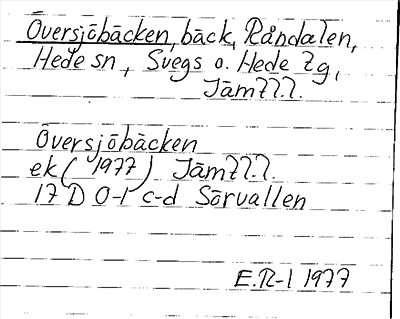 Översjöbäcken, bäck, Råndalen,
Hede sn, Svegs o. Hede tg,
Jämtl.l.
Översjöbäcken
ek (1977) Jämtl.l.
17 D 0-1 c-d Sörvallen
E.R-l 1977